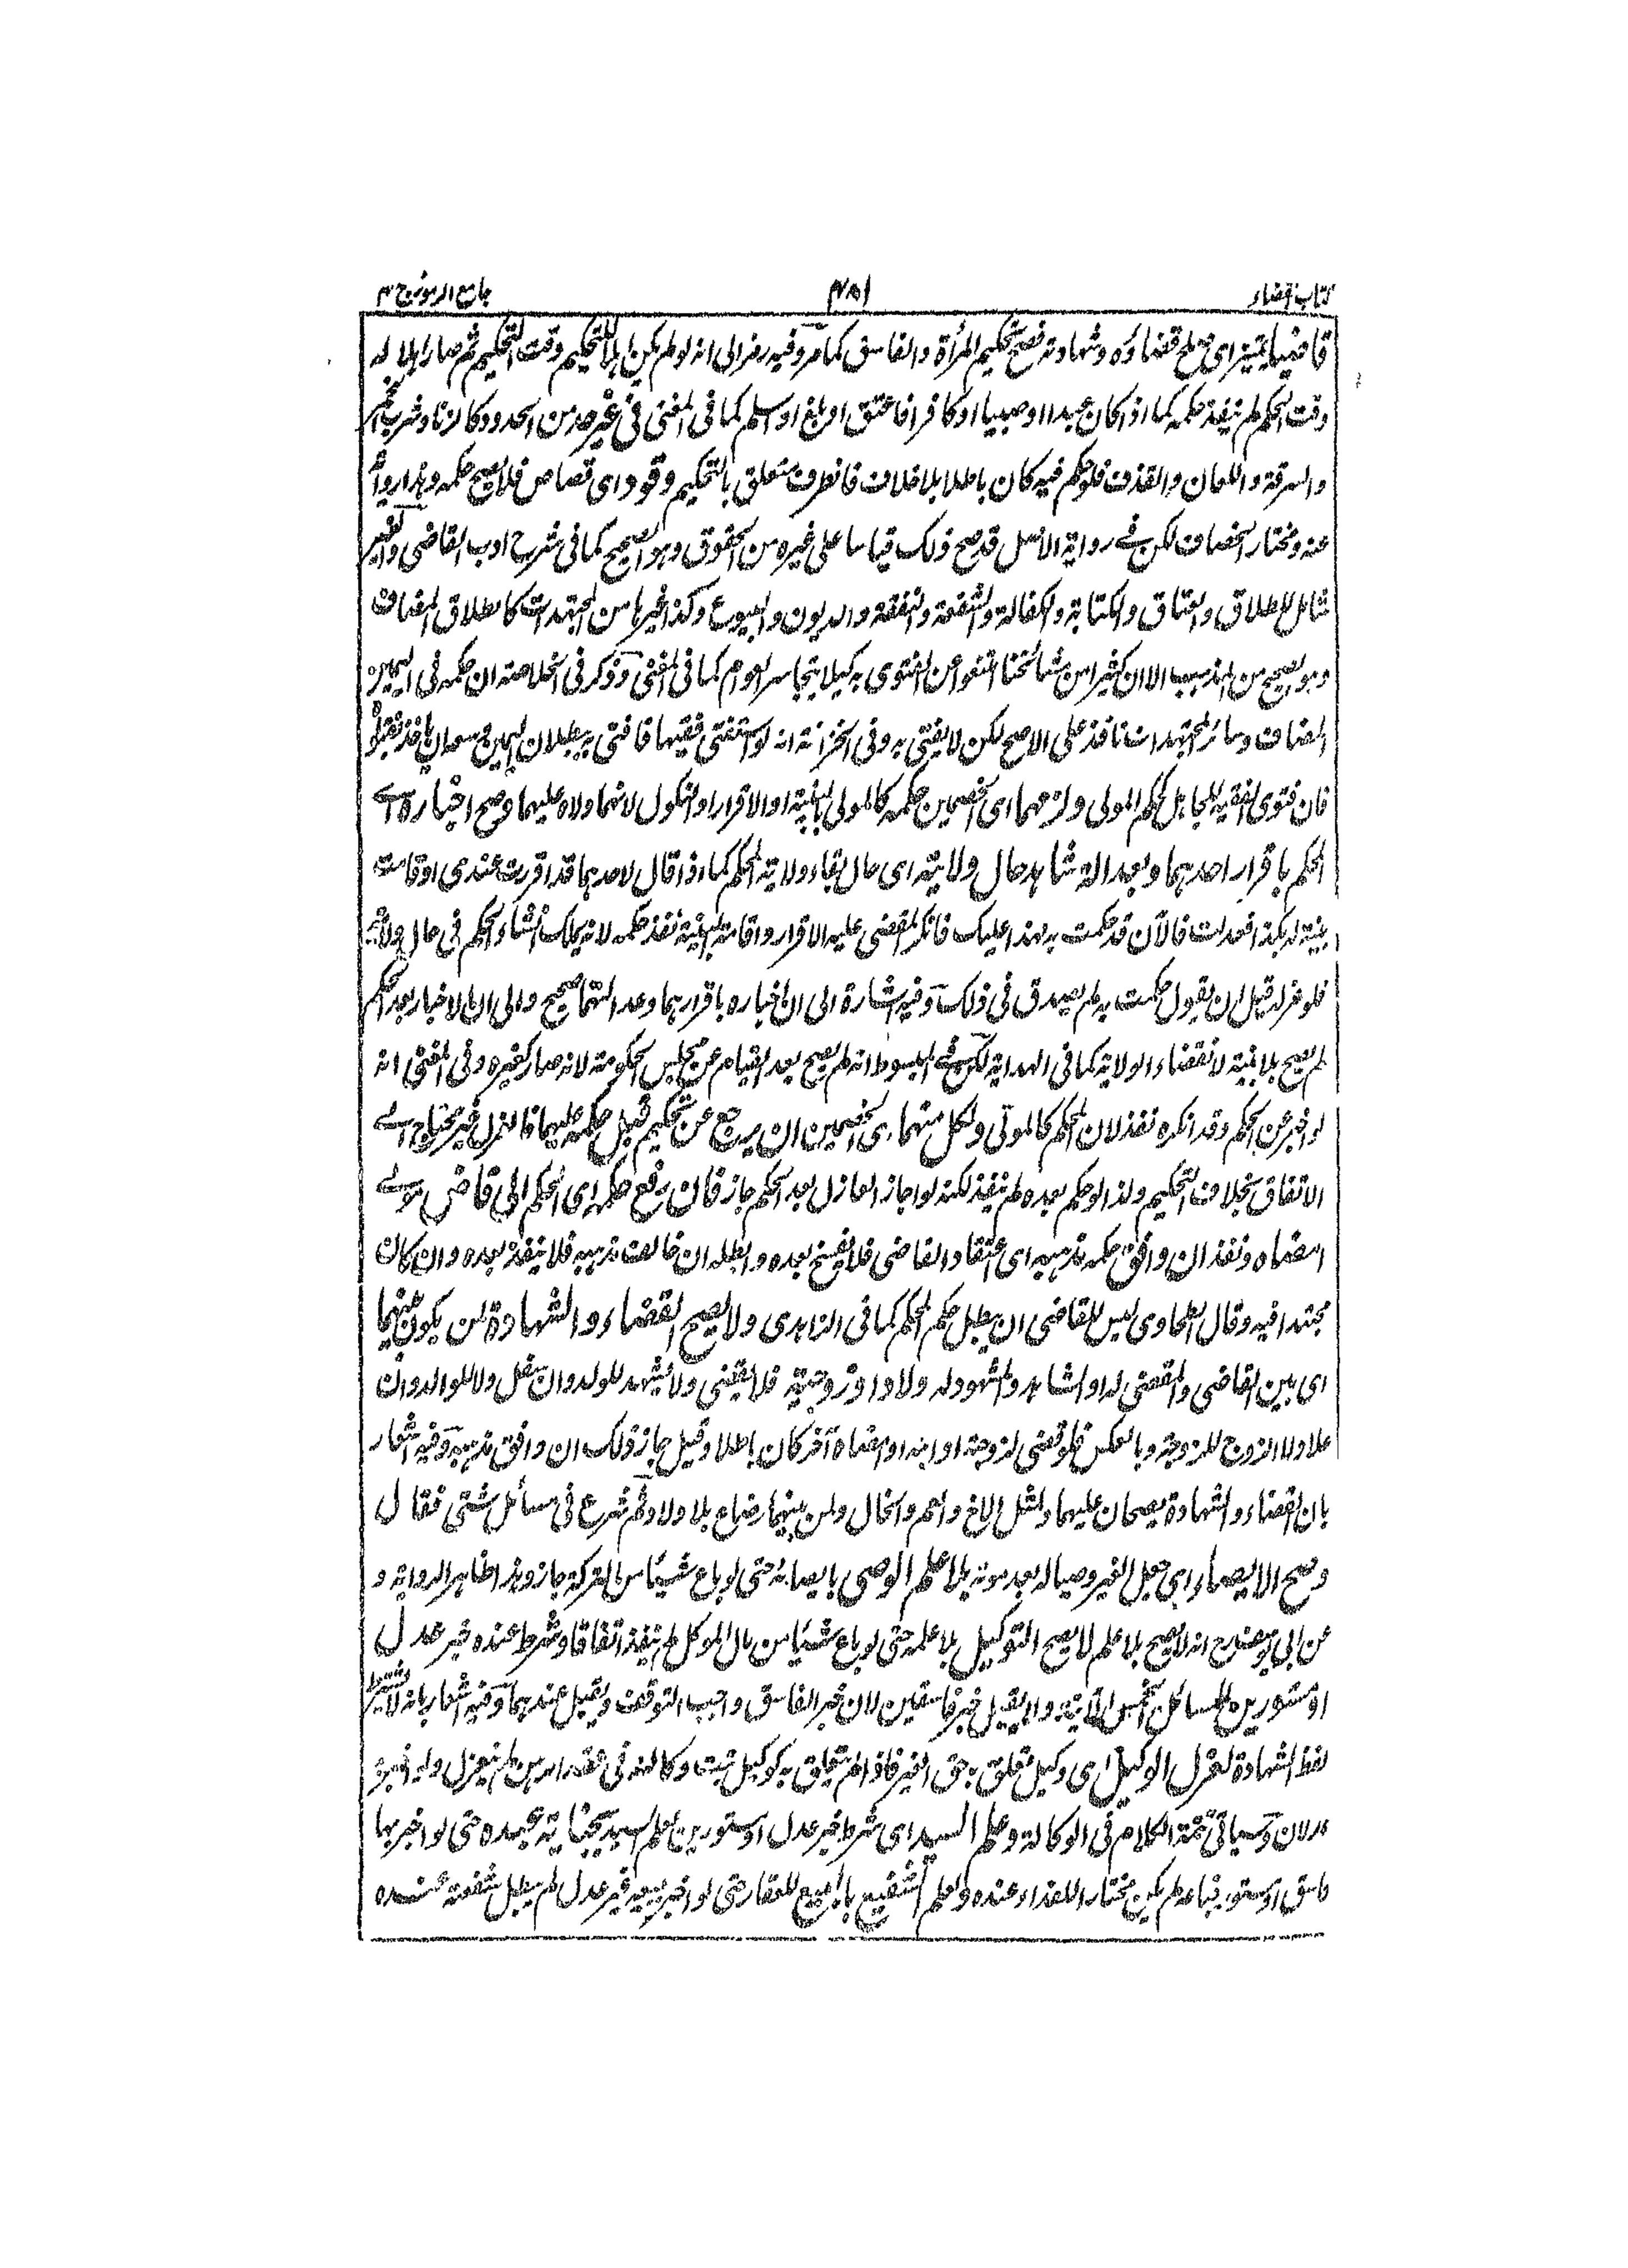 كتاب القضاء ۴۵۱ جامع الرموز ج ۲
قاضيا يتميز اى يصلح قضاؤه وشهادته فصح تحكيم المرأة والفاسق كما مر وفيه رمز الى انه لو لم يكن اهلا للتحكيم وقت التحكيم ثم صار اهلا له
وقت الحكم لم ينفذ حكمه كما اذا كان عبدا او صبيا او كافرا فاعتق او بلغ او سلم كما فى المغنى فى غير حد من الحدود كالزنا وشرب الخمر
والسرقة واللعان والقذف فلو حكم فيه كان باطلا بلا خلاف فالظرف متعلق بالتحكيم وقود اى قصاص فلا يصح حكمه وهذا رواية
عنه ومختار الخصاف لكن فى رواية الاصل قد صح ذلك قياسا على غيره من الحقوق وهو الصحيح كما فى شرح ادب القاضى والغير
شامل للطلاق والعتاق والكتابة والكفالة والشفعة والنفقة والديون والبيوع وكذا غيرها من المجتهدات كالطلاق المضاف
وهو الصحيح من المذهب الا ان كثيرا من مشائخنا امتنعوا عن الفتوى به كيلا يتجاسر العوام كما فى المغنى وذكر فى الخلاصة ان حكمه فى اليمين
المضاف وسائر المجتهدات نافذ على الاصح لكن لا يفتى به وفى الخزانة انه لو استفتى فقيها فافتى به ببطلان اليمين وسعه ان ياخذ بقوله
فان فتوى الفقيه للجاهل كحكم المولى ولزمهما اى الخصمين حكمه كالمولى بالبينة او الاقرار او النكول لانهما ولاه عليهما وصح اخباره اى
المحكم باقرار احدهما وبعدالة شاهد حال ولايته اى حال بقاء ولاية المحكم كما اذا قال لاحدهما قد اقررت عندى او قامت
بينة له بكذا فعدلت فالآن قد حكمت به لهذا عليك فانكر المقضى عليه الاقرار واقامة البينة نفذ حكمه لانه يملك انشاء الحكم فى حال ولايته
فلو عزله قبل ان يقول حكمت به لم يصدق فى ذلك وفيه اشارة الى ان اخباره باقرارهما وعدالتهما صحيح والى ان الاخبار بعد الحكم
لم يصح بلا بينة لانقضاء الولاية كما فى الهداية لكن فى المبسوط انه لم يصح بعد القيام عن مجلس الحكومة لانه صار كغيره وفى المغنى انه
لو اخبر عن الحكم وقد انكره نفذ لان المحكم كالمولى ولكل منهما اى الخصمين ان يرجع عن تحكيم قبل حكمه عليهما فالعزل غير محتاج الى
الاتفاق بخلاف التحكيم ولذا لو حكم بعده لم ينفذ لكنه لو اجاز العازل بعد الحكم جاز فان رفع حكمه اى المحكم الى قاض مولى
امضاه ونفذ ان وافق حكمه مذهبه اى اعتقاد القاضى فلا يفسخ بعده وابطله ان خالف مذهبه فلا ينفذ بعده وان كان
مجتهدا فيه وقال الطحاوى ليس للقاضى ان يبطل حكم المحكم كما فى الزاهدى ولا يصح القضاء والشهادة لمن يكون بينهما
اى بين القاضى والمقضى له او الشاهد والمشهود له ولاد او زوجية فلا يقضى ولا يشهد للولد وان سفل ولا للوالد وان
علا ولا الزوج للزوجة وبالعكس فلو قضى لزوجته او ابنه او امضاه آخر كان باطلا وقيل جاز ذلك ان وافق مذهبه وفيه اشعار
بان القضاء والشهادة يصحان عليهما ولمثل الاخ والعم والخال ولمن بينهما رضاع بلا ولاد ثم شرع فى مسائل شتى فقال
وصح الايصاء اى جعل الغير وصيا له بعد موته بلا علم الوصى بايصائه حتى لو باع شيئا من التركة جاز وهذا ظاهر الرواية و
عن ابى يوسف رح انه لا يصح بلا علم لا يصح التوكيل بلا علمه حتى لو باع شيئا من مال الموكل لم ينفذ اتفاقا وشرط عنده خبر عدل
او مستورين للمسائل الخمس الآتية ولا يقبل خبر فاسقين لان خبر الفاسق واجب التوقف ويقبل عندهما وفيه اشعار بانه لا يشترط
لفظ الشهادة لعزل الوكيل اى وكيل تعلق به حق الغير فاذا لم يتعلق به كوكيل ثبت وكالته فى عقد الرهن لم ينعزل وله اخبره
عدلان وسياتى تتمة الكلام فى الوكالة وعلم السيد اى شرط خبر عدل او مستورين لعلم السيد بجناية عبده حتى لو اخبر بها
فاسق او مستور فباعه لم يكن مختارا للفداء عنده ولعلم الشفيع بالبيع للعقار حتى لو اخبر ببيعه غير عدل لم يبطل شفعته عنده